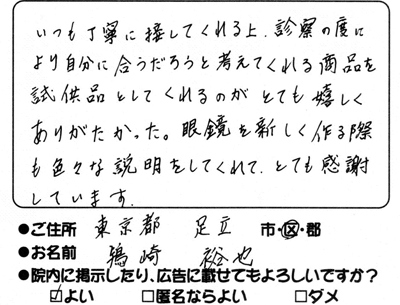 いつも丁寧に接してくれる上、診察の度に
より自分に合うだろうと考えてくれる商品を
試供品としてくれるのがとても嬉しく
ありがたかった。眼鏡を新しく作る際
も色々な説明をしてくれて、とても感謝
しています。
●ご住所 東京都 足立 市・区・郡
●お名前 鴇崎 裕也
●院内に掲示したり、広告に載せてもよろしいですか?
☑よい □匿名ならよい □ダメ